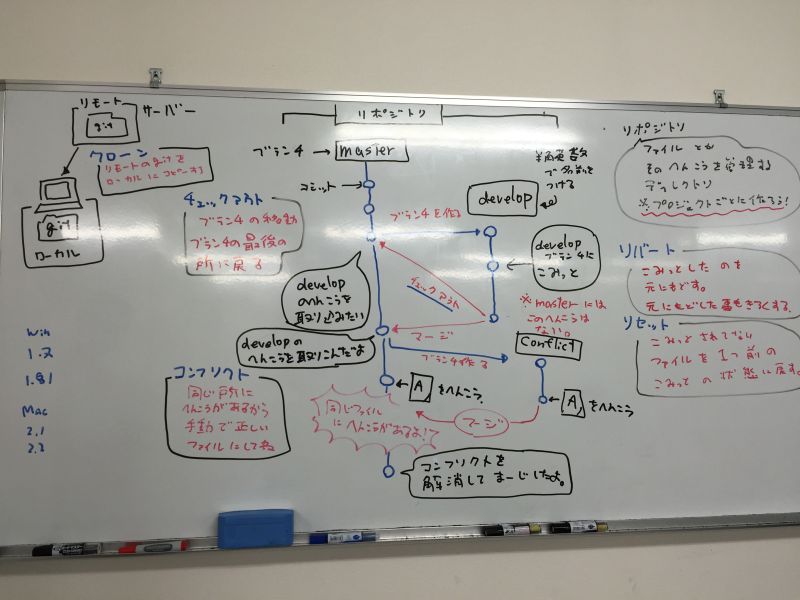 リモート
サーバー
git
クローン
リモートのgitを
ローカルにコピーする
git
ローカル
Win
1.7
1.8.1
Mac
2.1
2.2
リポジトリ
ブランチ → master
コミット →
チェックアウト
ブランチの移動
ブランチの最後の
所に戻る
ブランチを作る
develop
ブランチ名を
つける
develop
ブランチに
こみっと
develop
のへんこうを
取り込みたい
チェックアウト
マージ
※masterには
このへんこうは
ない。
developの
へんこうを取りこんだよ
ブランチ作る
Conflict
コンフリクト
同じ所に
へんこうがあるから
手動で正しい
ファイルにしてね
← A をへんこう
← A をへんこう
同じファイル
にへんこうがあるよ!?
マージ
コンフリクトを
解消して まーじしたよ。
リポジトリ
ファイル とか
そのへんこうを管理する
ディレクトリ
※プロジェクトごとに作ろう!
リバート
こみっとしたのを
元にもどす。
元にもどした事もきろくする。
リセット
こみっとされてない
ファイルを1つ前の
こみっとの状態に戻す。